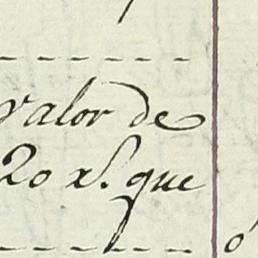 valor de
20 rs. que